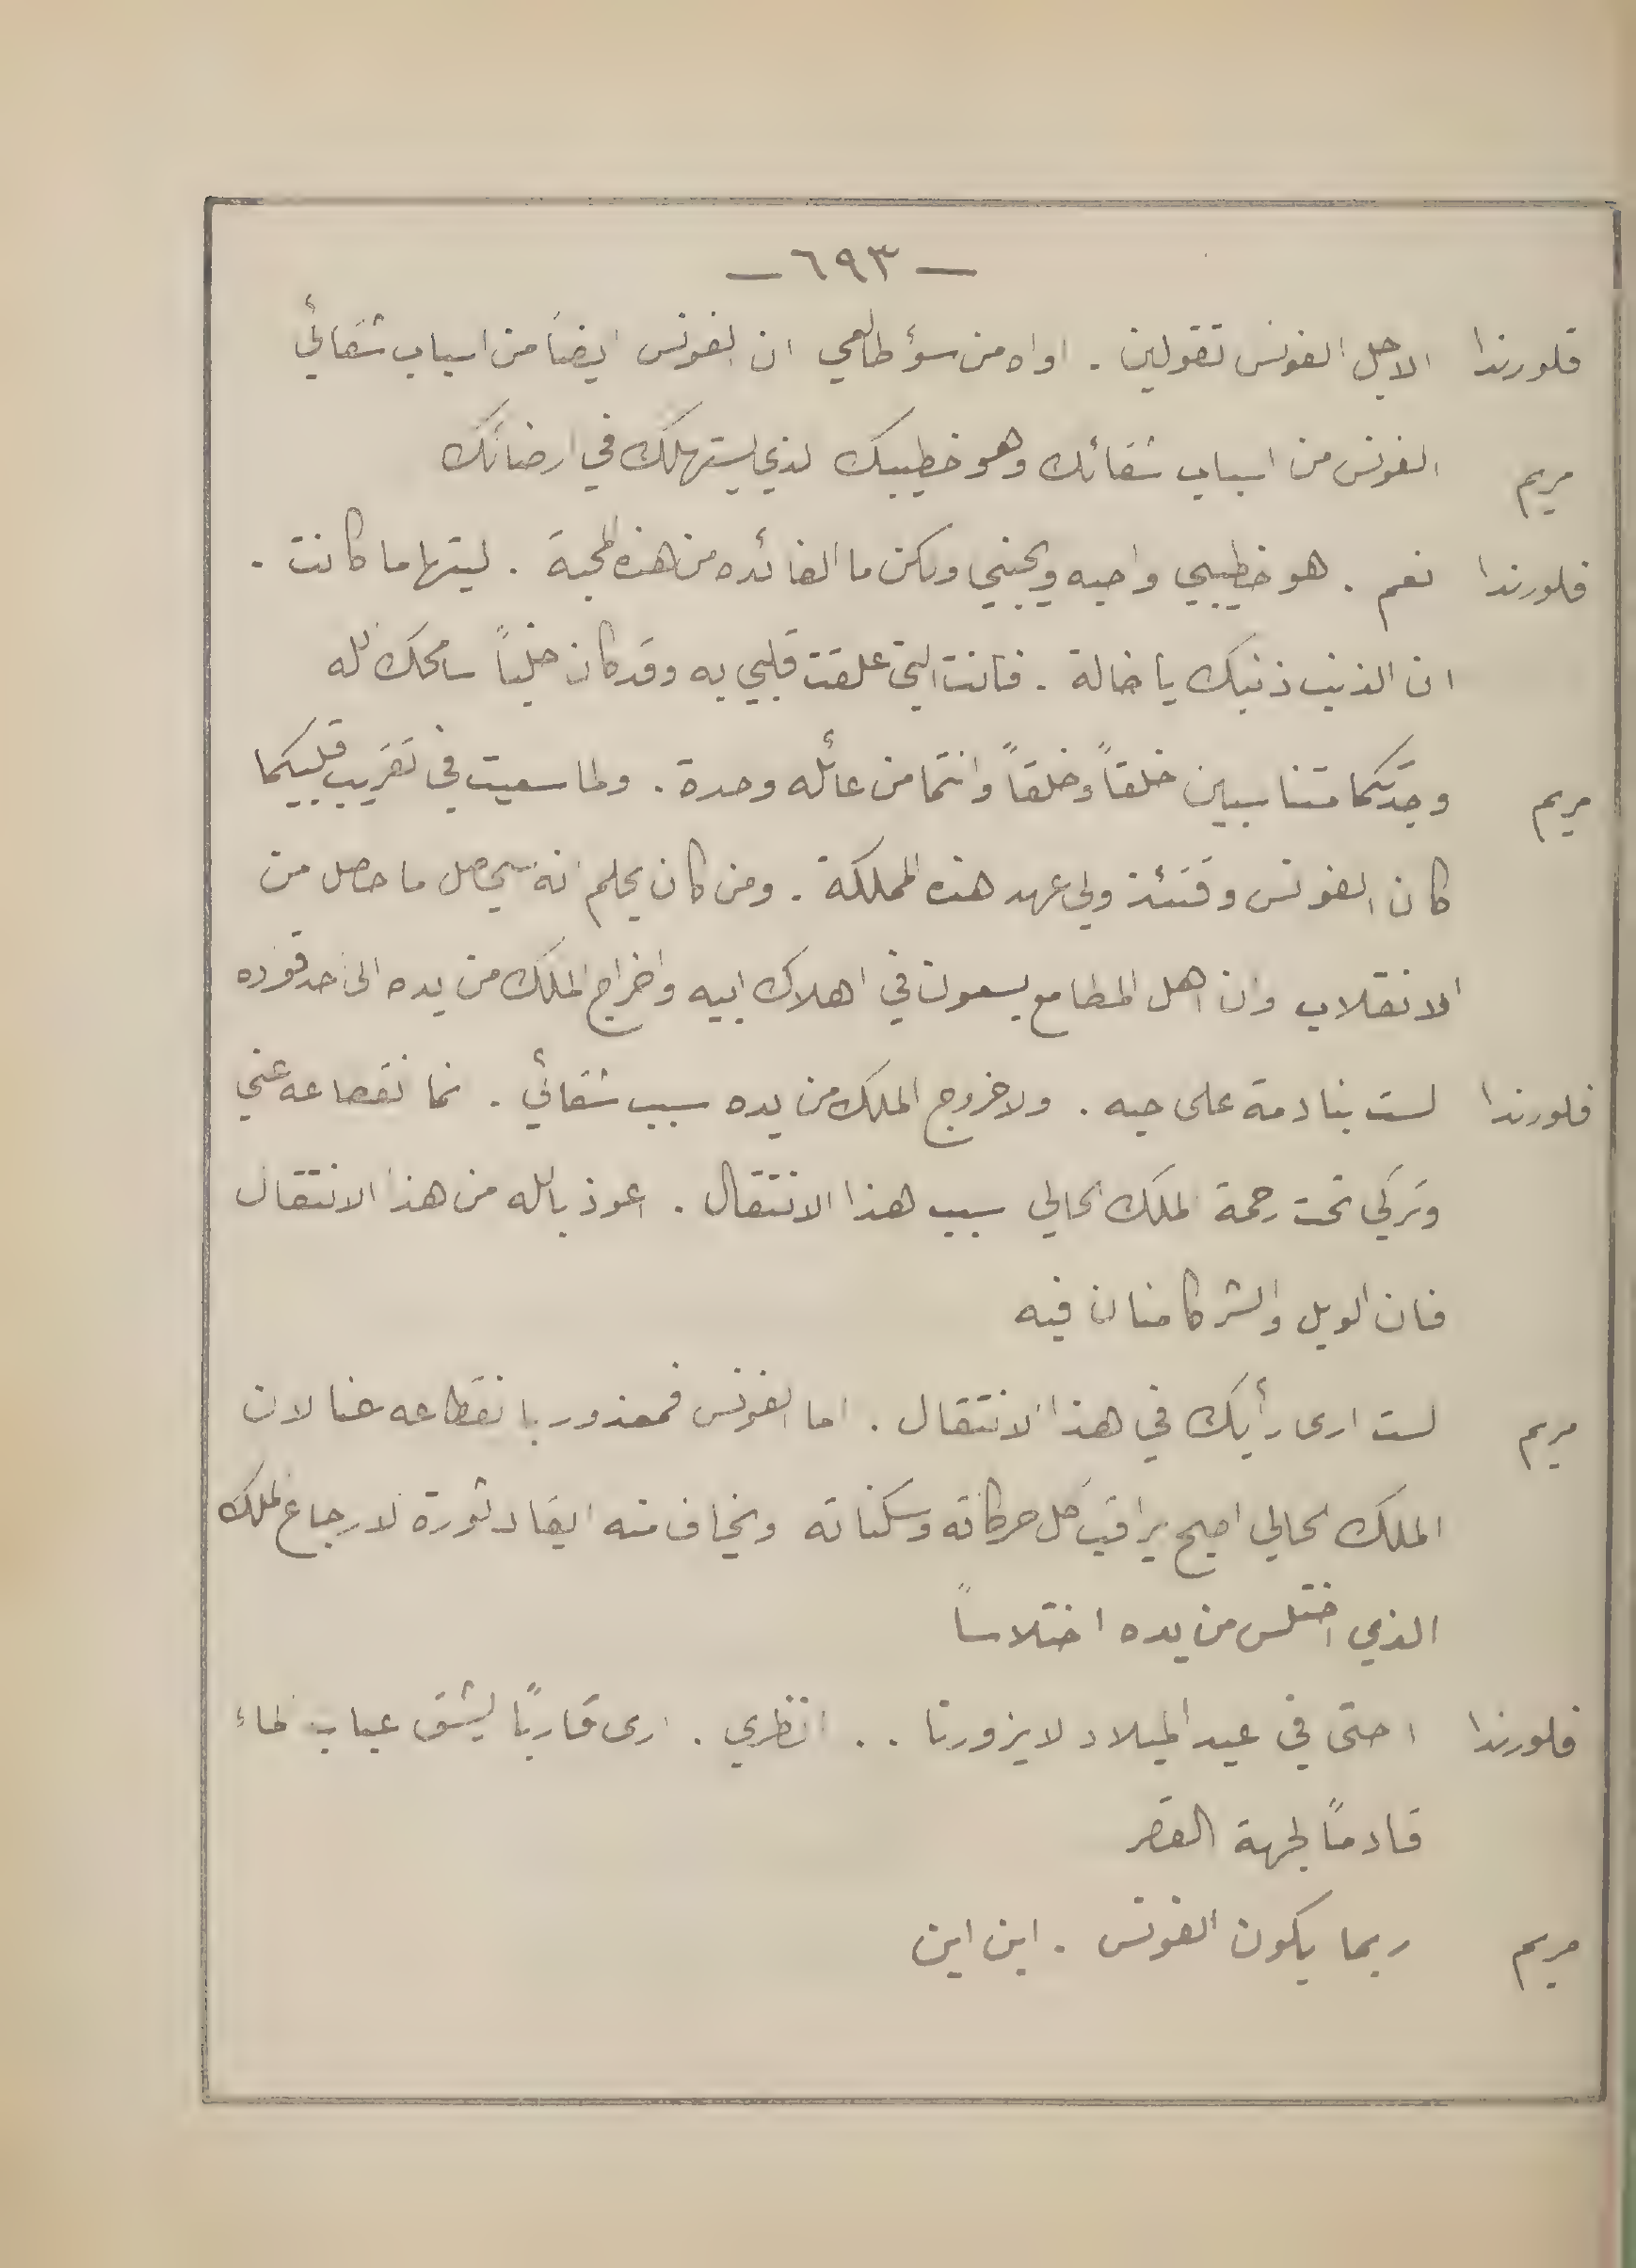 — ٦٩٣ —
فلورندا الاجل الفونس تقولين . اواه من سؤ طالعي ان الفونس ايضاً من اسباب شقائي
مريم الفونس من اسباب شقائك وهو خطيبك الذي يستهلك في ارضائك
فلورندا نعم . هو خطيبي واحبه ويحبني ولكن ما الفائده من هذه المحبة . ليتها ما كانت .
ان الذنب ذنبك يا خالة . فانت التي علقت قلبي به وقد كان خلياً سامحك الله
مريم وجدتكما متناسبين خلقاً وخلقاً وانتما من عائله وحدة . ولما سعيت في تقريب قلبيكما
كان الفونس وقتئذ ولي عهد هذه المملكة . ومن كان يحلم انه سيحصل ما حصل من
الانقلاب وان اهل المطامع يسعون في اهلاك ابيه واخراج الملك من يده الى احد قوده
فلورندا لست بنادمة على حبه . ولا خروج الملك من يده سبب شقائي . انما نقصاعه عني
وتركي تحت رحمة الملك الحالي سبب هذا الانتقال . اعوذ بالله من هذا الانتقال
فان الويل والشر كامنان فيه
مريم لست ارى رأيك في هذا الانتقال . اما الفونس فمعذور بانقطاعه عنا لان
الملك الحالي اصبح يراقب كل حركاته وسكناته ويخاف منه ايقاد ثورة لارجاع الملك
الذي اختلس من يده اختلاساً
فلورندا احتى في عيد الميلاد لا يزورنا . . انظري . ارى قارباً يشق عباب الماء
قادماً لجهة القصر
مريم ربما يكون الفونس . اين اين